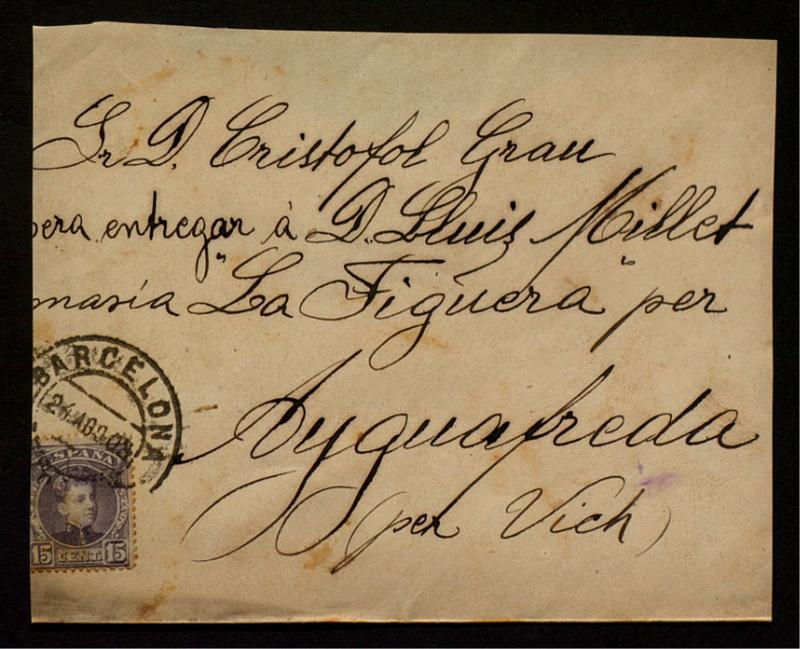 Sr. D. Cristofol Grau
pera entregar á D. Lluis Millet
masía "La Figuera" per
Ayguafreda
(per Vich)
BARCELONA
ESPAÑA
15 CENT. 15